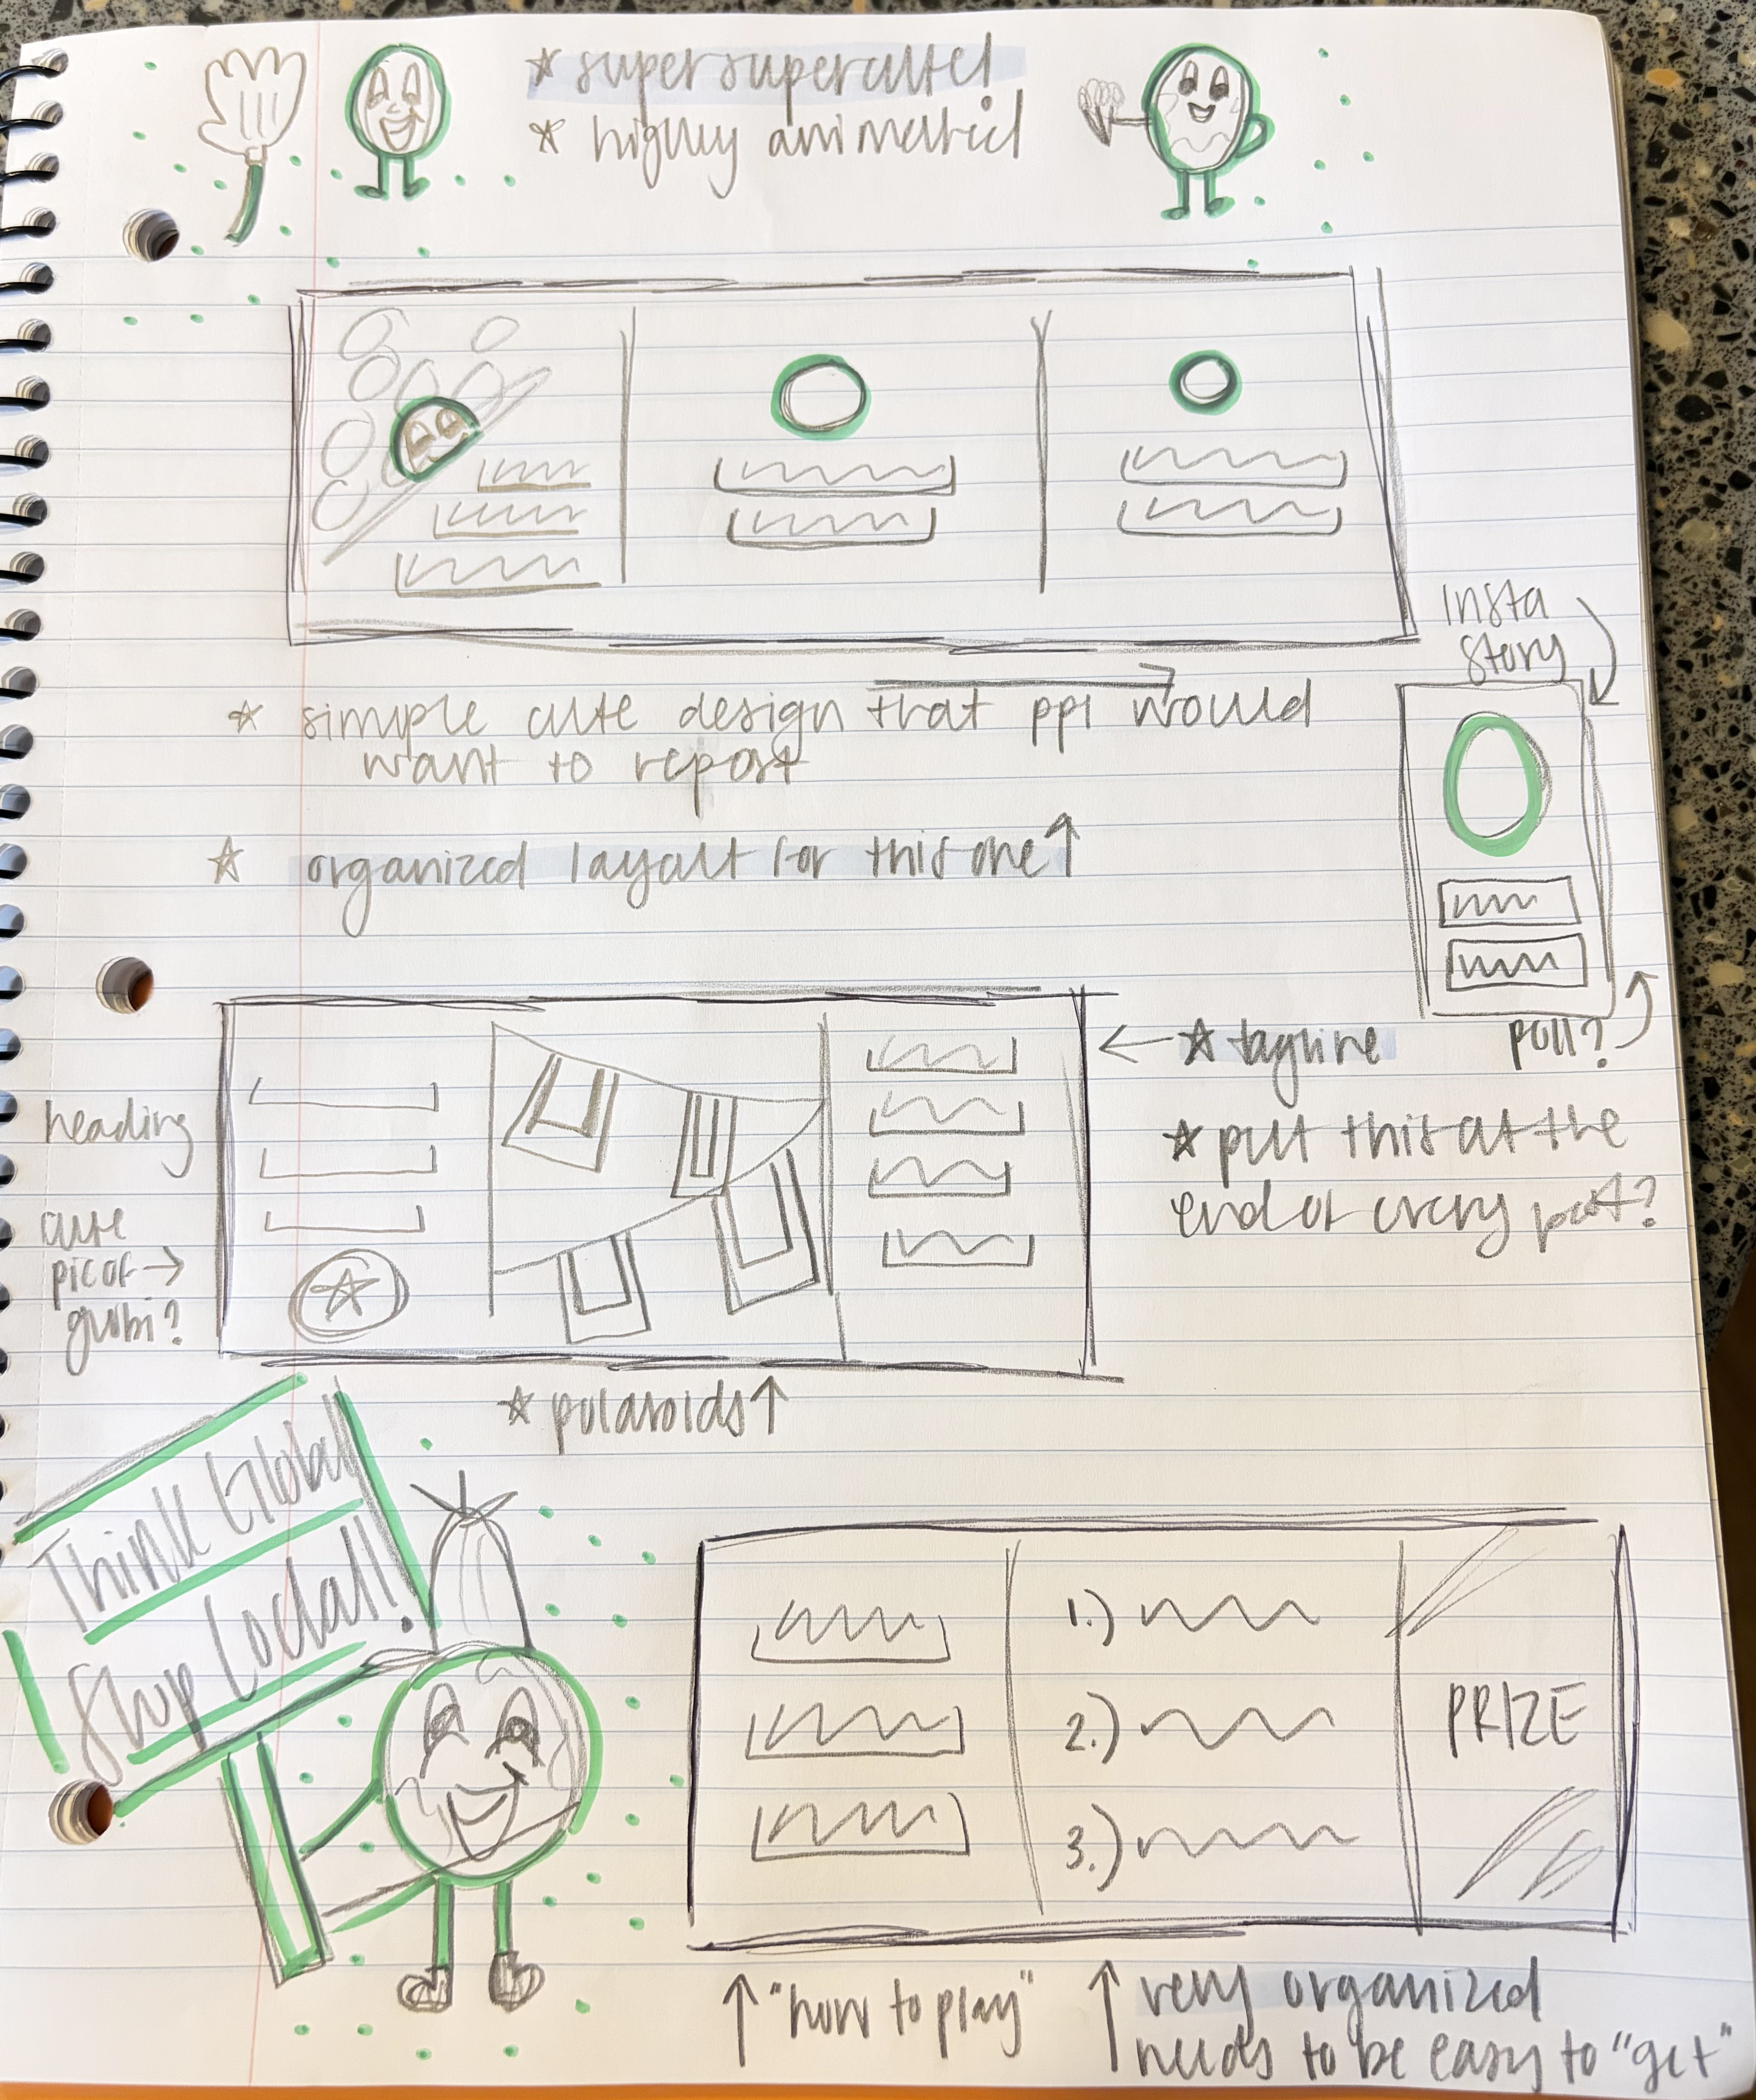 ★ super super cute!
★ highly animated
Insta
Story
★ simple cute design that ppl would
want to repost
★ organized layout for this one ↑
poll?
← ★ tagline
★ put this at the
end of every post?
heading
cute
pic of →
globi?
★ polaroids ↑
Think Global
Shop Local!
1.)
2.)
3.)
PRIZE
↑ "how to play"
↑ very organized
needs to be easy to "get"